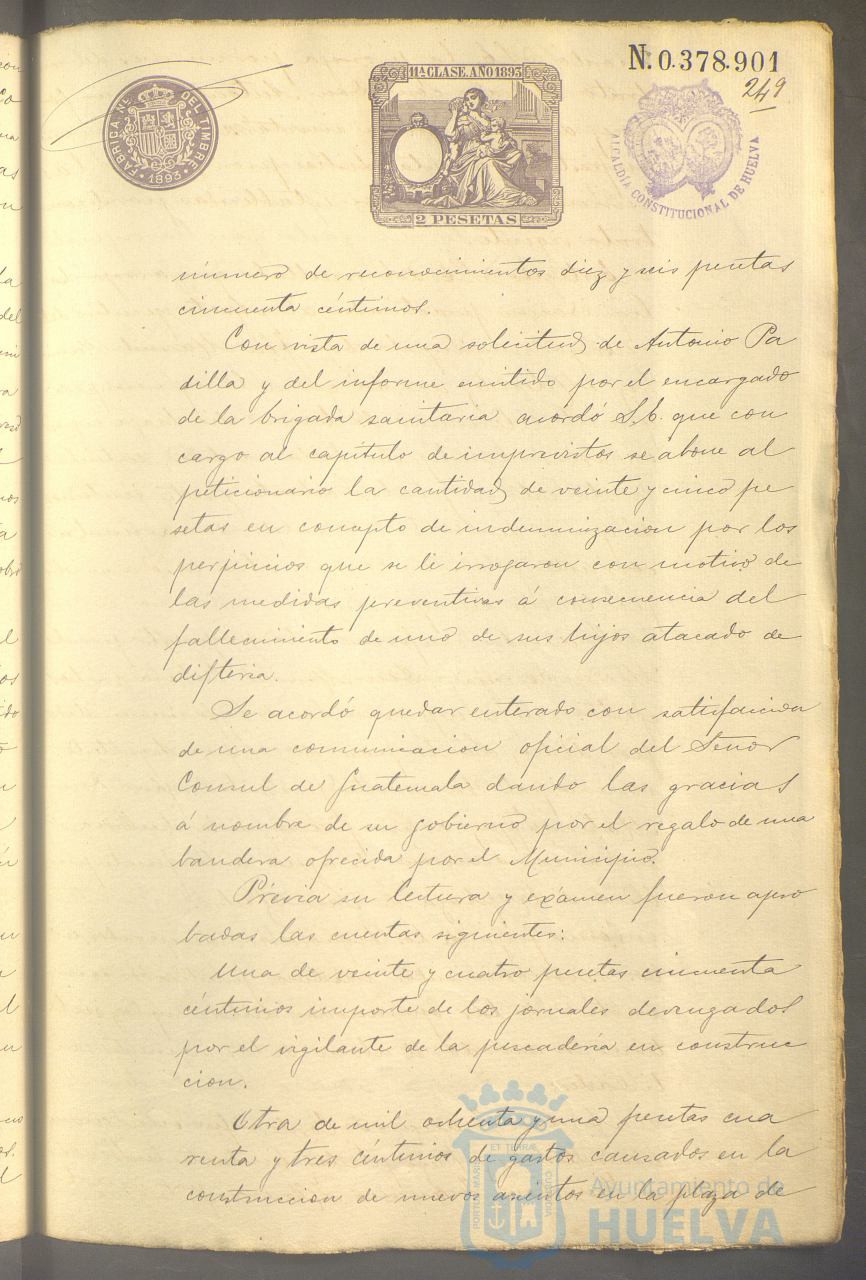 FABRICA NAL DEL TIMBRE
1893
11ª CLASE. AÑO 1893
2 PESETAS
N. 0.378.901
249
ALCALDIA CONSTITUCIONAL DE HUELVA
número de reconocimientos diez y seis pesetas
cincuenta céntimos.
Con vista de una solicitud de Antonio Pa
dilla y del informe emitido por el encargado
de la brigada sanitaria acordó S.E. que con
cargo al capítulo de imprevistos se abone al
peticionario la cantidad de veinte y cinco pe
setas en concepto de indemnizacion por los
perjuicios que se le irrogaron con motivo de
las medidas preventivas á consecuencia del
fallecimiento de uno de sus hijos atacado de
difteria.
Se acordó quedar enterado con satisfaccion
de una comunicacion oficial del Señor
Consul de Guatemala dando las gracias
á nombre de su gobierno por el regalo de una
bandera ofrecida por el Municipio.
Prévia su lectura y exámen fueron apro
badas las cuentas siguientes:
Una de veinte y cuatro pesetas cincuenta
céntimos importe de los jornales devengados
por el vigilante de la pescadería en construc
cion.
Otra de mil ochenta y una pesetas cua
renta y tres céntimos de gastos causados en la
construccion de nuevos asientos en la plaza de
Ayuntamiento de
HUELVA